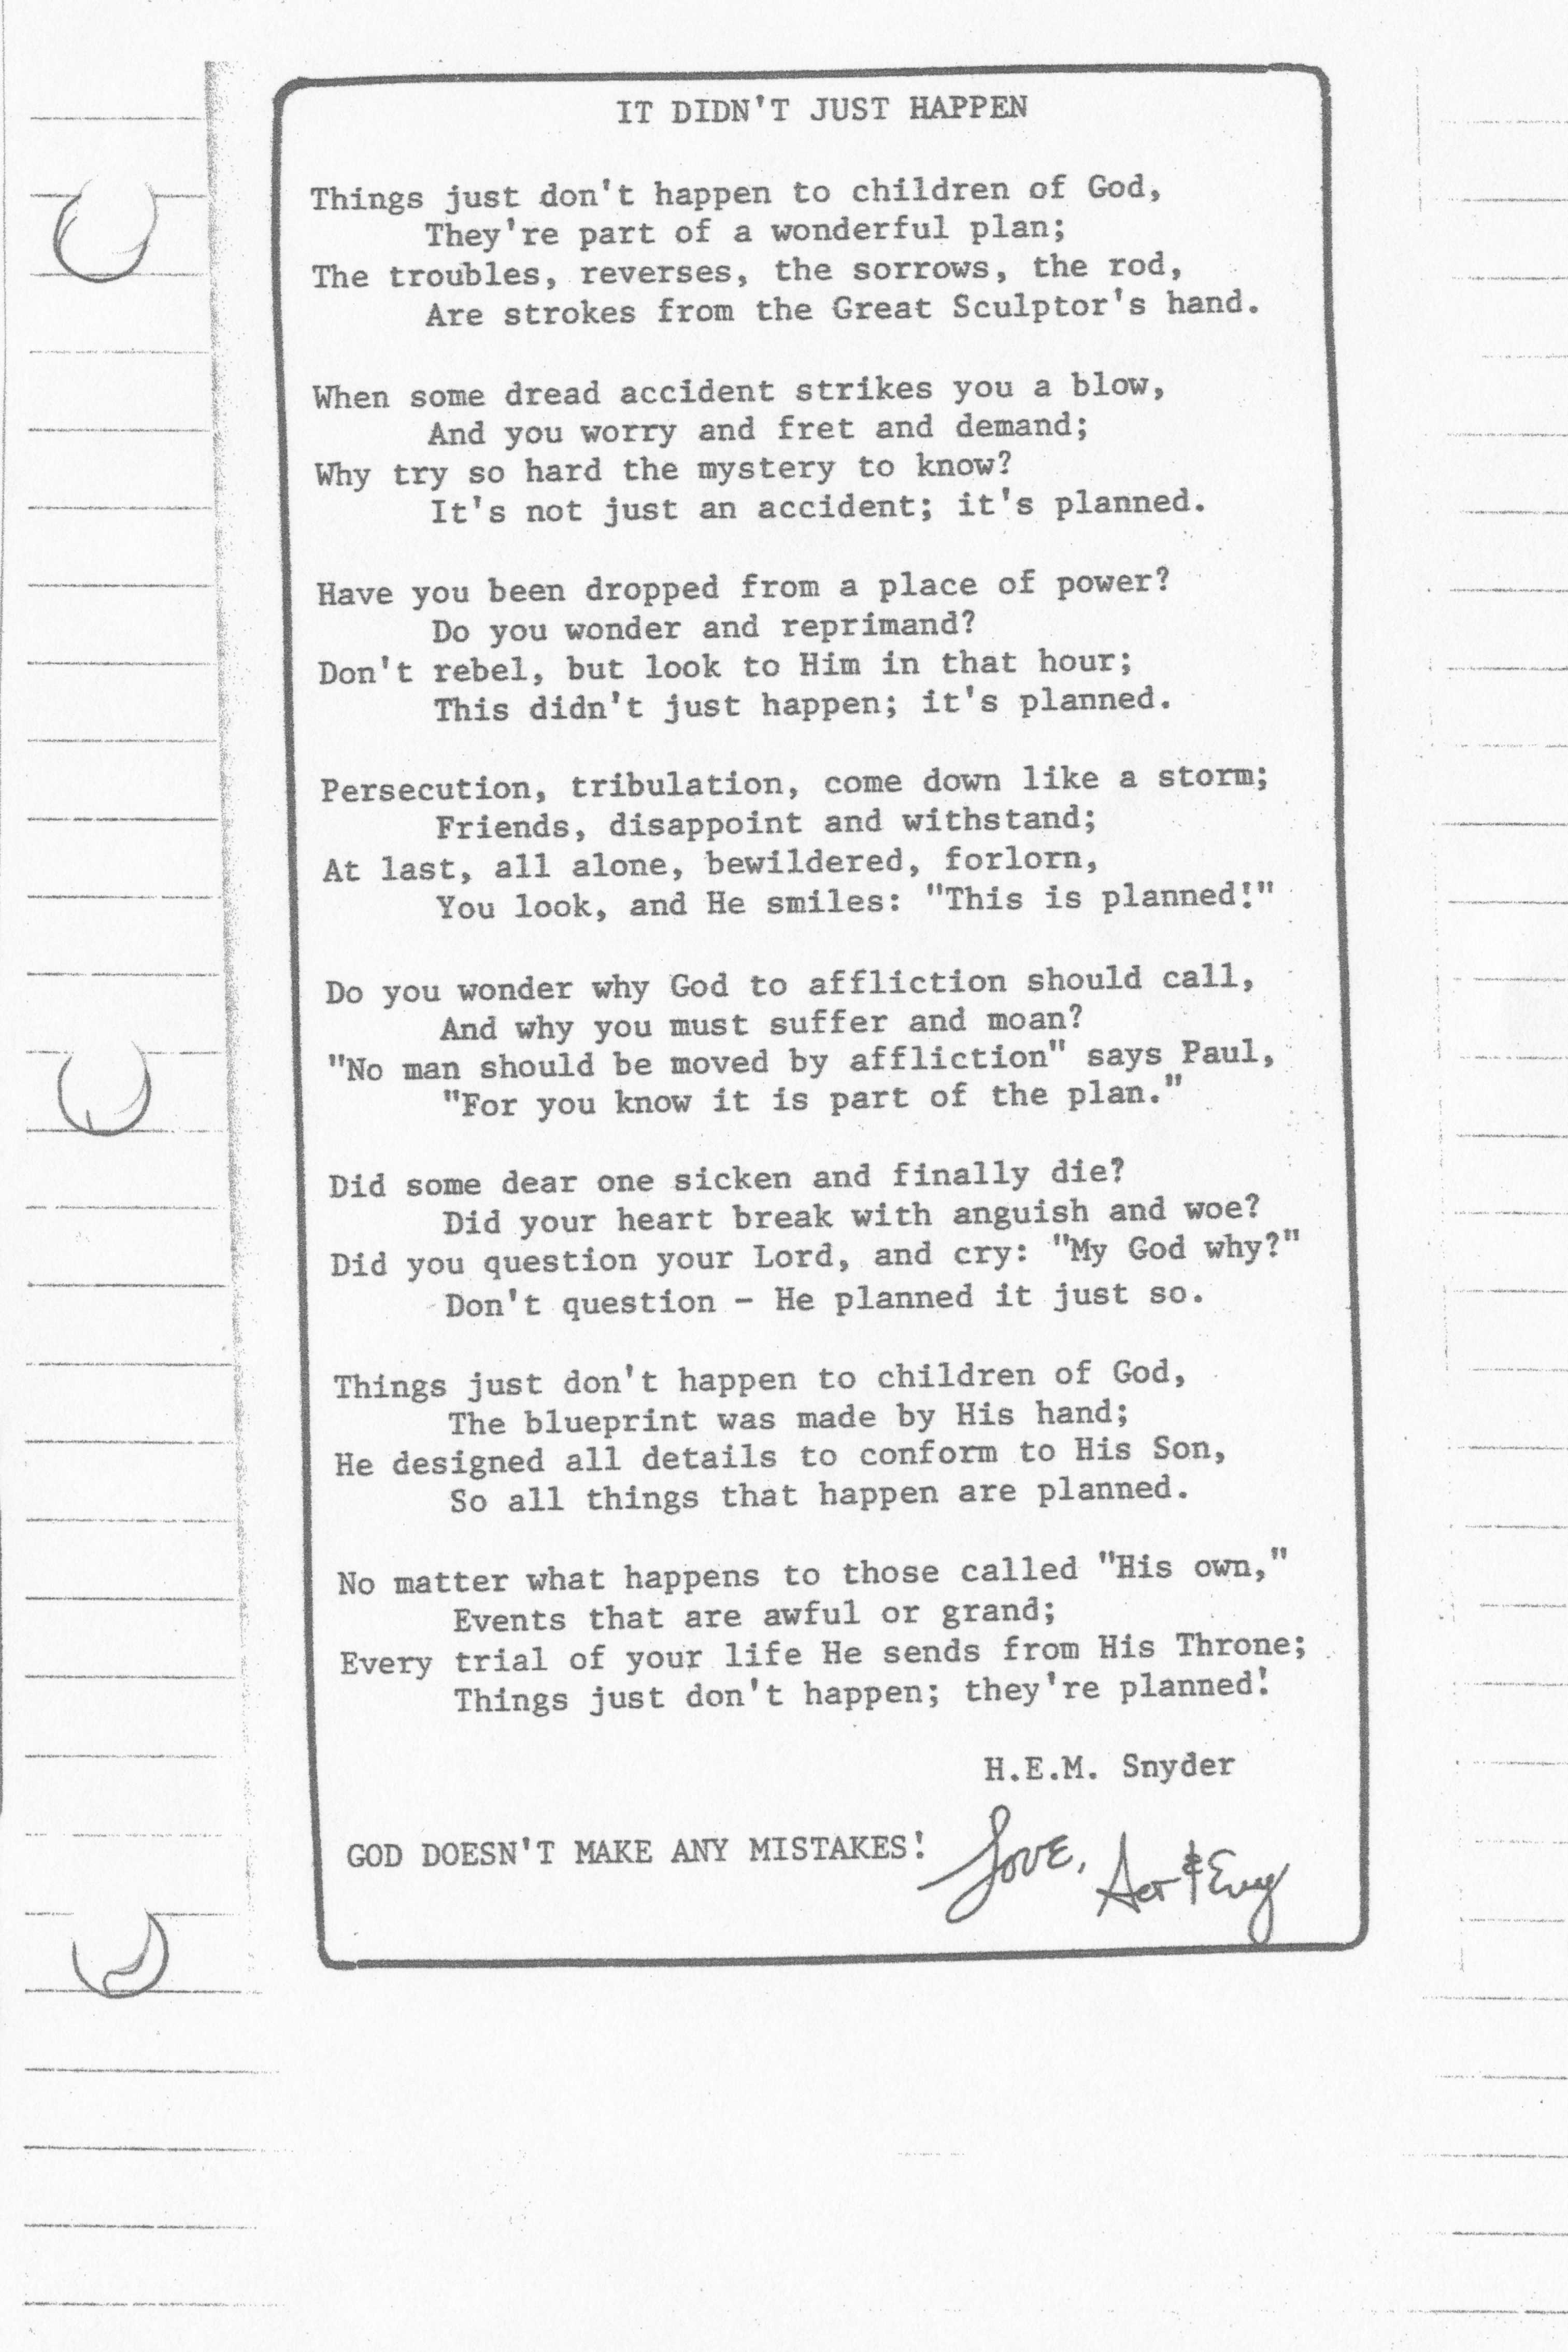 IT DIDN'T JUST HAPPEN
Things just don't happen to children of God,
They're part of a wonderful plan;
The troubles, reverses, the sorrows, the rod,
Are strokes from the Great Sculptor's hand.
When some dread accident strikes you a blow,
And you worry and fret and demand;
Why try so hard the mystery to know?
It's not just an accident; it's planned.
Have you been dropped from a place of power?
Do you wonder and reprimand?
Don't rebel, but look to Him in that hour;
This didn't just happen; it's planned.
Persecution, tribulation, come down like a storm;
Friends, disappoint and withstand;
At last, all alone, bewildered, forlorn,
You look, and He smiles: "This is planned!"
Do you wonder why God to affliction should call,
And why you must suffer and moan?
"No man should be moved by affliction" says Paul,
"For you know it is part of the plan."
Did some dear one sicken and finally die?
Did your heart break with anguish and woe?
Did you question your Lord, and cry: "My God why?"
Don't question - He planned it just so.
Things just don't happen to children of God,
The blueprint was made by His hand;
He designed all details to conform to His Son,
So all things that happen are planned.
No matter what happens to those called "His own,"
Events that are awful or grand;
Every trial of your life He sends from His Throne;
Things just don't happen; they're planned!
H.E.M. Snyder
GOD DOESN'T MAKE ANY MISTAKES! Love, & Evy